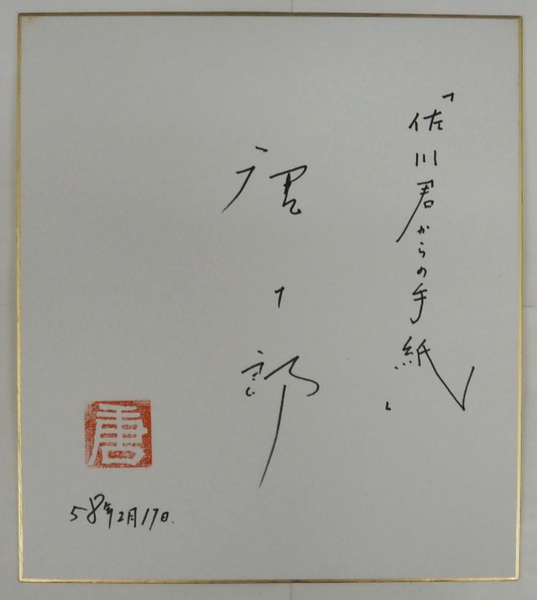 「佐川君からの手紙」
唐十郎
唐
58年2月17日.